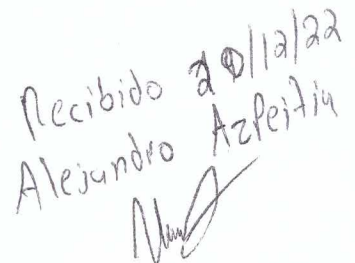 Recibido 20/12/22
Alejandro Azpeitia